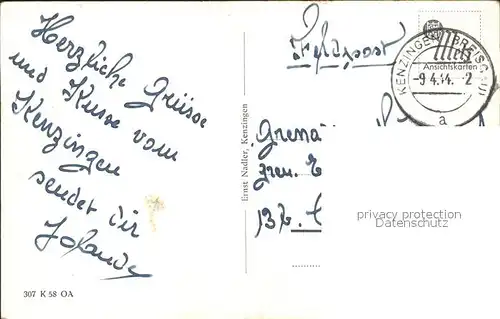 Herzliche Grüsse
und Küsse vom
Kenzingen
sendet dir
Jolande
307 K 58 OA
Ernst Nadler, Kenzingen
Feldpost
KENZINGEN (BREISGAU)
Metz
Ansichtskarten
-9.4.44.-2
a
Grena
Gren. E
privacy protection
Datenschutz